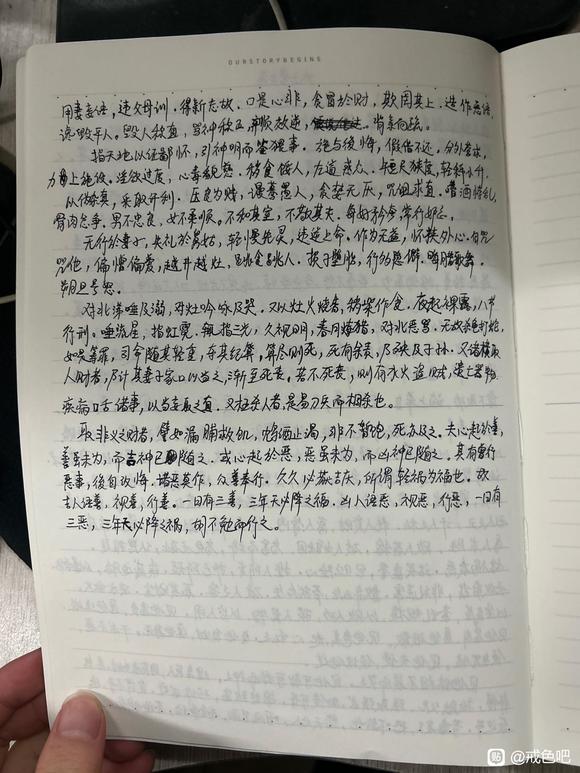 OURSTORYBEGINS
用妻妾语，违父母训．得新忘故．口是心非，贪冒於财，欺罔其上．造作恶语，
谗毁平人．毁人称直，骂神称正．弃顺效逆，背亲向疏．
指天地以证鄙怀，引神明而鉴猥事．施与後悔，假借不还．分外营求，
力上施设．淫欲过度，心毒貌慈．秽食餧人，左道惑众．短尺狭度，轻秤小升．
以伪杂真，采取奸利．压良为贱，谩蓦愚人，贪婪无厌，咒诅求直．嗜酒悖乱，
骨肉忿争．男不忠良，女不柔顺．不和其室，不敬其夫．每好矜夸，常行妒忌．
无行於妻子，失礼於舅姑，轻慢先灵，违逆上命．作为无益，怀挟外心．自咒
咒他，偏憎偏爱，越井越灶，跳食跳人．损子堕胎，行多隐僻．晦腊歌舞．
朔旦号怒．
对北涕唾及溺，对灶吟咏及哭．又以灶火烧香，秽柴作食．夜起裸露，八节
行刑．唾流星，指虹霓．辄指三光，久视日月，春月燎猎，对北恶骂．无故杀龟打蛇，
如是等罪，司命随其轻重，夺其纪算，算尽则死，死有余责，乃殃及子孙．又诸横取
人财者，乃计其妻子家口以当之，渐至死丧．若不死丧，则有水火盗贼，遗亡器物
疾病口舌诸事，以当妄取之直．又枉杀人者，是易刀兵而相杀也．
取非义之财者，譬如漏脯救饥，鸩酒止渴，非不暂饱，死亦及之．夫心起於善，
善虽未为，而吉神已随之．或心起於恶，恶虽未为，而凶神已随之．其有曾行
恶事，後自改悔，诸恶莫作，众善奉行．久久必获吉庆，所谓转祸为福也．故
吉人语善，视善，行善．一日有三善，三年天必降之福．凶人语恶，视恶，行恶，一日有
三恶，三年天必降之祸，胡不勉而行之．
贴 @戒色吧